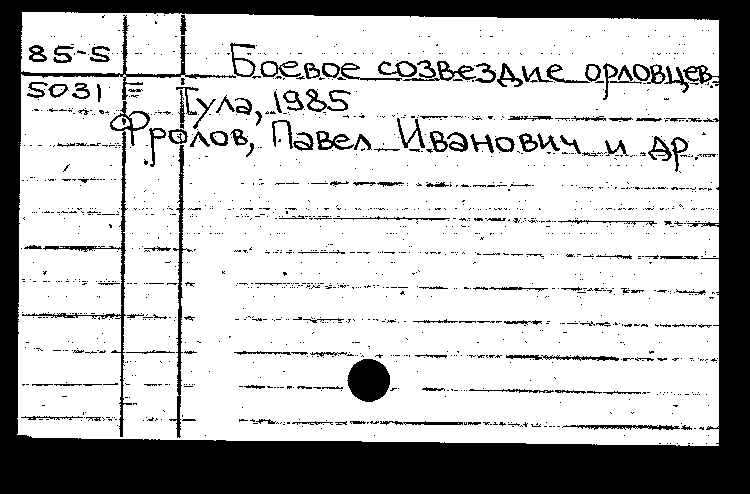 85-5 Боевое созвездие орловцев.
5031 Тула, 1985
Фролов, Павел Иванович и др.